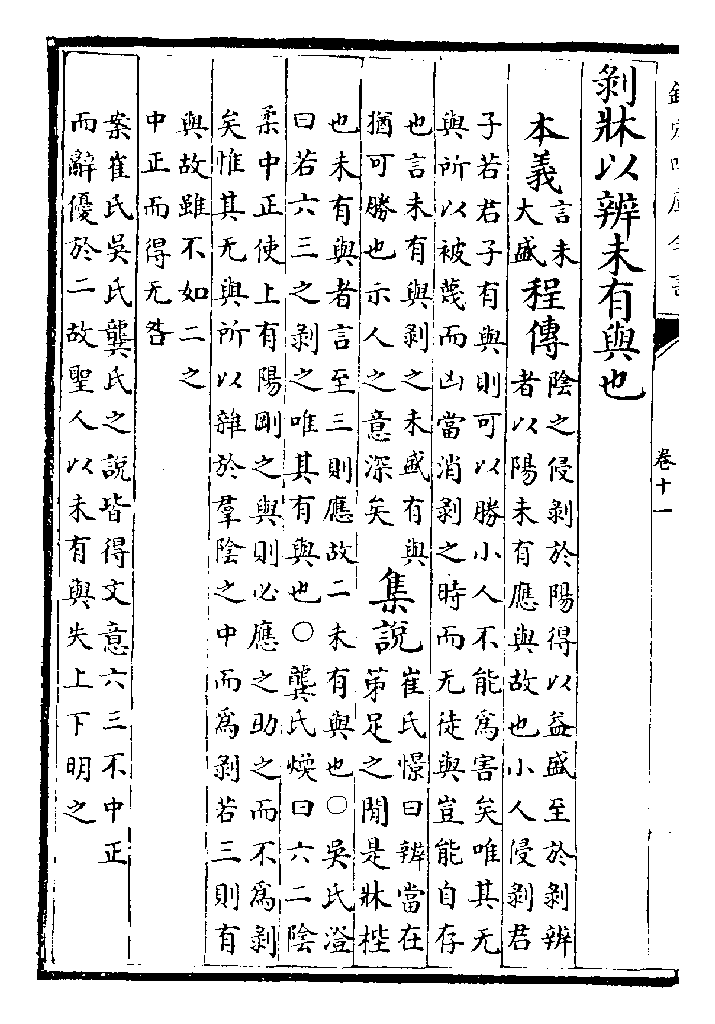 欽定四庫全書
卷十一
剝牀以辨未有與也
本義
言未
大盛
程傳
陰之侵剝於陽得以益盛至於剝辨
者以陽未有應與故也小人侵剝君
子若君子有與則可以勝小人不能為害矣唯其无
與所以被蔑而凶當消剝之時而无徒與豈能自存
也言未有與剝之未盛有與
猶可勝也示人之意深矣
集說
崔氏憬曰辨當在
第足之間是牀梐
也未有與者言至三則應故二未有與也○吳氏澄
曰若六三之剝之唯其有與也○龔氏煥曰六二陰
柔中正使上有陽剛之與則必應之助之而不為剝
矣惟其无與所以雜於羣陰之中而為剝若三則有
與故雖不如二之
中正而得无咎
案崔氏吳氏龔氏之說皆得文意六三不中正
而辭優於二故聖人以未有與失上下明之